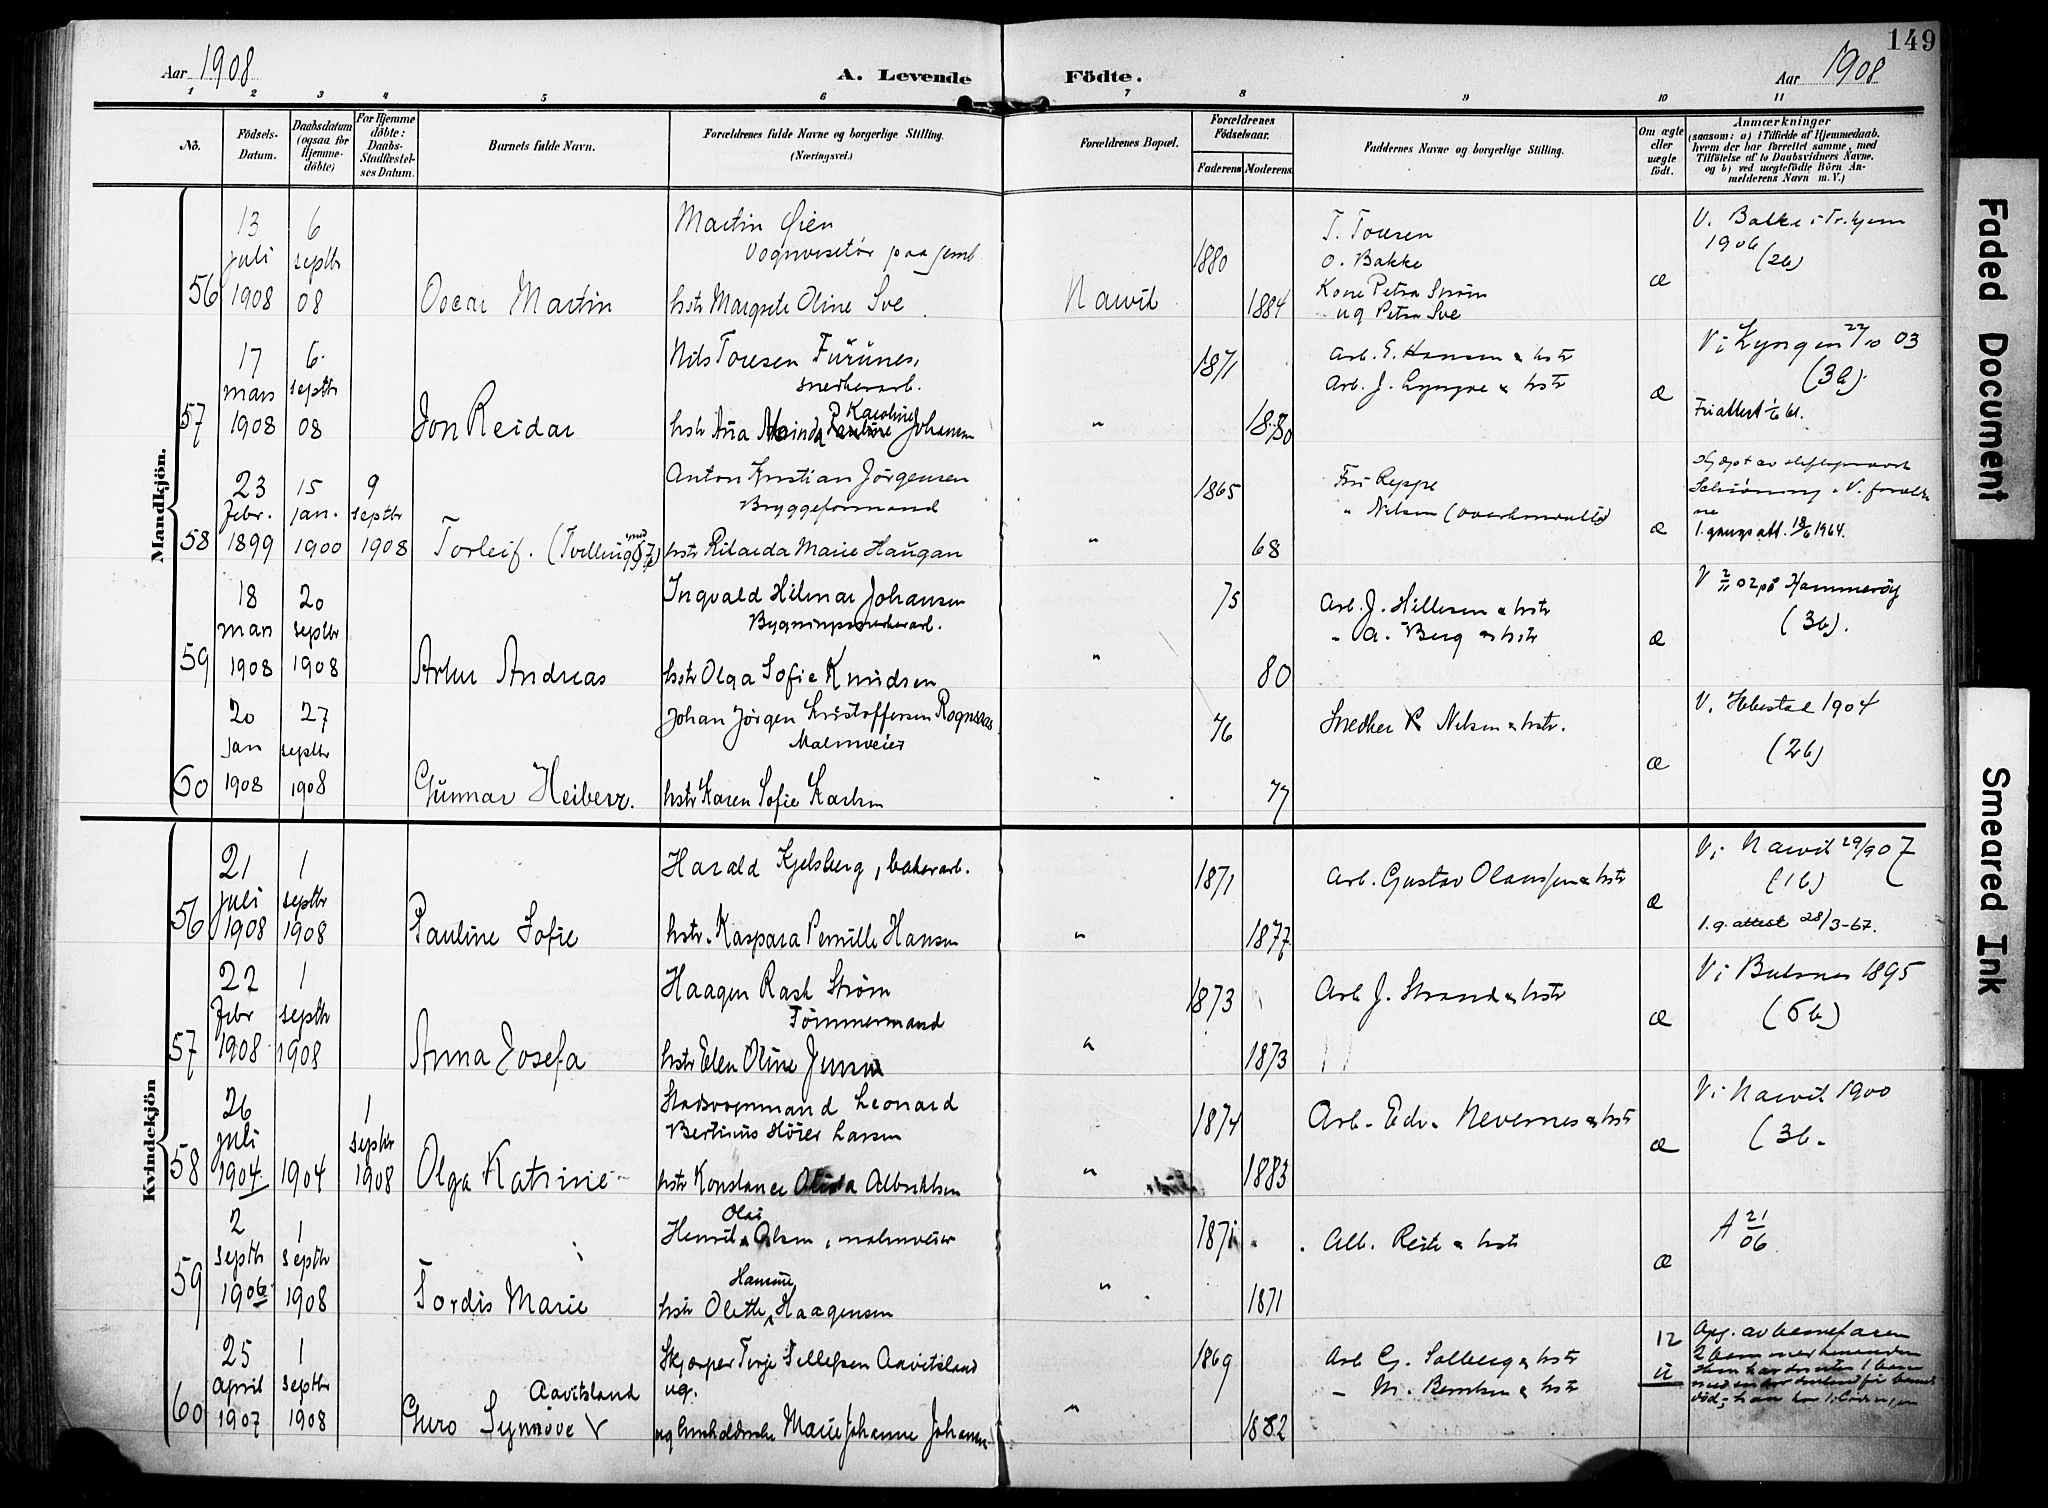 149
Aar 1908
A. Levende Födte.
Aar 1908
1 2 3 4 5 6 7 8 9 10 11
No.
Födsels-Datum.
Daabsdatum (ogsaa for Hjemme-döbte)
For Hjemme döbte: Daabs-Stadfæstel-ses Datum.
Barnets fulde Navn.
Forældrenes fulde Navne og borgerlige Stilling.
(Næringsvei.)
Forældrenes Bopæl.
Forældrenes Födselsaar.
Faderens Moderens
Faddernes Navne og borgerlige Stilling.
Om ægte eller uægte födt.
Anmærkninger
(saasom: a) i Tilfælde af Hjemmedaab.
hvem der har forrettet samme, med
Tilföielse af to Daabsvidners Navne.
og b) ved uægtefödte Börn An-
melderens Navn m. V.)
Mandkjön.
56
13 juli 1908
6 septbr 08
Oscar Martin
Martin Øien
hstr Margrete Oline Sve
Narvik
1880
1884
T. Toresen
O. Bakke
Kone Petra Strøm
ug Petra Sve
æ
V. Bakke i Tr.hjem
1906
(2b)
57
17 mars 1908
6 septbr 08
Jon Reidar
Nils Toresen Furünes,
snedkerarb.
hstr Ana Karoline Johansen
"
1871
1880
Arb. E. Hansen & hstr
Arb. J. Lyngve & hstr
æ
V i Lyngen 22/10 03
(3b)
Friattest 1/6 61.
58
23 febr. 1899
15 jan. 1900
9 septbr 1908
Torleif. (Tvilling med 57)
Anton Kristian Jörgensen
Bryggeformand
hstr Rikarda Marie Haugan
"
1865
68
Fru Reppe
" Nelsen
æ
Schiöning
1. gangs att. 18/6 1964.
59
18 mars 1908
20 septbr 1908
Artur Andreas
Ingvald Hilmar Johansen
Bygningssnekerarb.
hstr Olga Sofie Knudsen
"
75
80
Arb. J. Hillesen & hstr
" A. Berg & hstr
æ
V 2/11 02 på Hammeröy
(3b).
60
20 jan 1908
27 septbr 1908
Gunnar Heiberr.
Johan Jörgen Kristoffersen Rognsaas
Malmveier
hstr Karen Sofie Karlsen
"
76
77
Snedker R Nelsen & hstr.
æ
V. Ibbestad 1904
(2b)
Kvindekjön
56
21 juli 1908
1 septbr 1908
Pauline Sofie
Harald Kjelsberg, bakerarb.
hstr. Kaspara Pernille Hansen
"
1871
1877
Arb. Gustav Olaussen & hstr
æ
V i Narvik 29/9 07
(1b)
1.g. attest 28/3-67.
57
22 febr 1908
1 septbr 1908
Anna Josefa
Haagen Rask Strøm
Tömmermand
hstr Elen Oline Jensen
"
1873
1873
Arb J. Strand & hstr
æ
V i Buksnes 1895
(6b)
58
26 juli 1904
1904
1 septbr 1908
Olga Katrine
Stadsvognmand Leonard
Bertinus Höier Larsen
hstr Konstance Olida Albriktsen
"
1874
1883
Arb. Edv. Nevernes & hstr
æ
V i Narvik 1900
(3b.
59
2 septbr 1906
1 septbr 1908
Tordis Marie
Henrik Olai Olsen, malmveier
hstr Olette Hansine Haagensen
"
1871
1871
Alb. Reite & hstr
æ
A 21/06
60
25 april 1907
1 septbr 1908
Guro Synnöve Aavitsland
Skjærper Terje Tellefsen Aavitsland
ug.
ug husholderske Marie Johanne Johansen
"
1869
1882
Arb G. Solberg & hstr
" M. Berntsen & hstr
12
u
Opg. av barnefaren
Faded Document
Smeared Ink